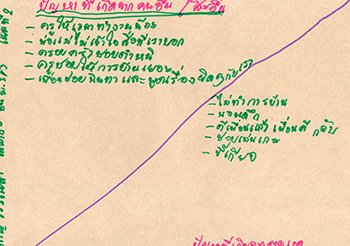 ปัญหาที่เกิดจากคนอื่น / สิ่งอื่น
- ครูให้เวลาทำงานน้อย
- พ่อแม่ไม่เข้าใจสิ่งที่เราบอก
- ครอบครัวชอบตำหนิ
- ครูชอบให้การบ้านเยอะ
- เพื่อนชอบนินทา และพูดเรื่องผิดๆกับเรา
- ไม่ทำการบ้าน
- นอนดึก
- ตีเพื่อนแล้วเพื่อนตีกลับ
- ชอบเล่นเกม
- ขี้เกียจ